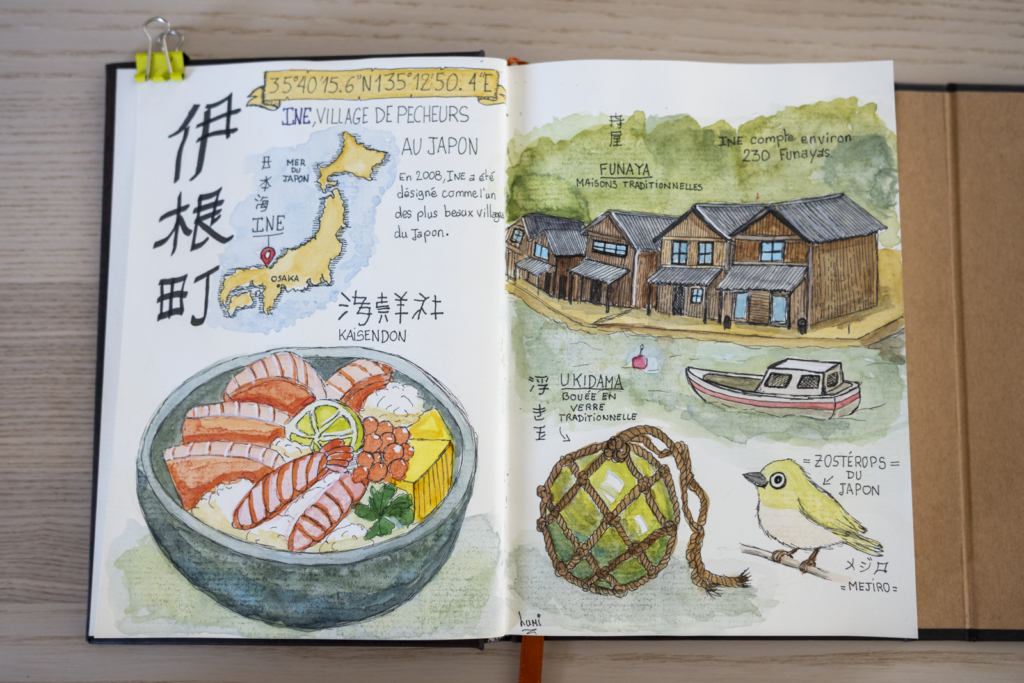 35°40'15.6"N 135°12'50.4"E
伊根町
INE, VILLAGE DE PECHEURS
AU JAPON
En 2008, INE a été
désigné comme l'un
des plus beaux villages
du Japon.
日本海
MER
DU
JAPON
INE
OSAKA
海鮮
KAISENDON
舟屋
FUNAYA
MAISONS TRADITIONNELLES
INE compte environ
230 Funayas.
浮き玉
UKIDAMA
BOUÉE EN
VERRE
TRADITIONNELLE
= ZOSTÉROPS =
DU
JAPON
メジロ
= MEJIRO =